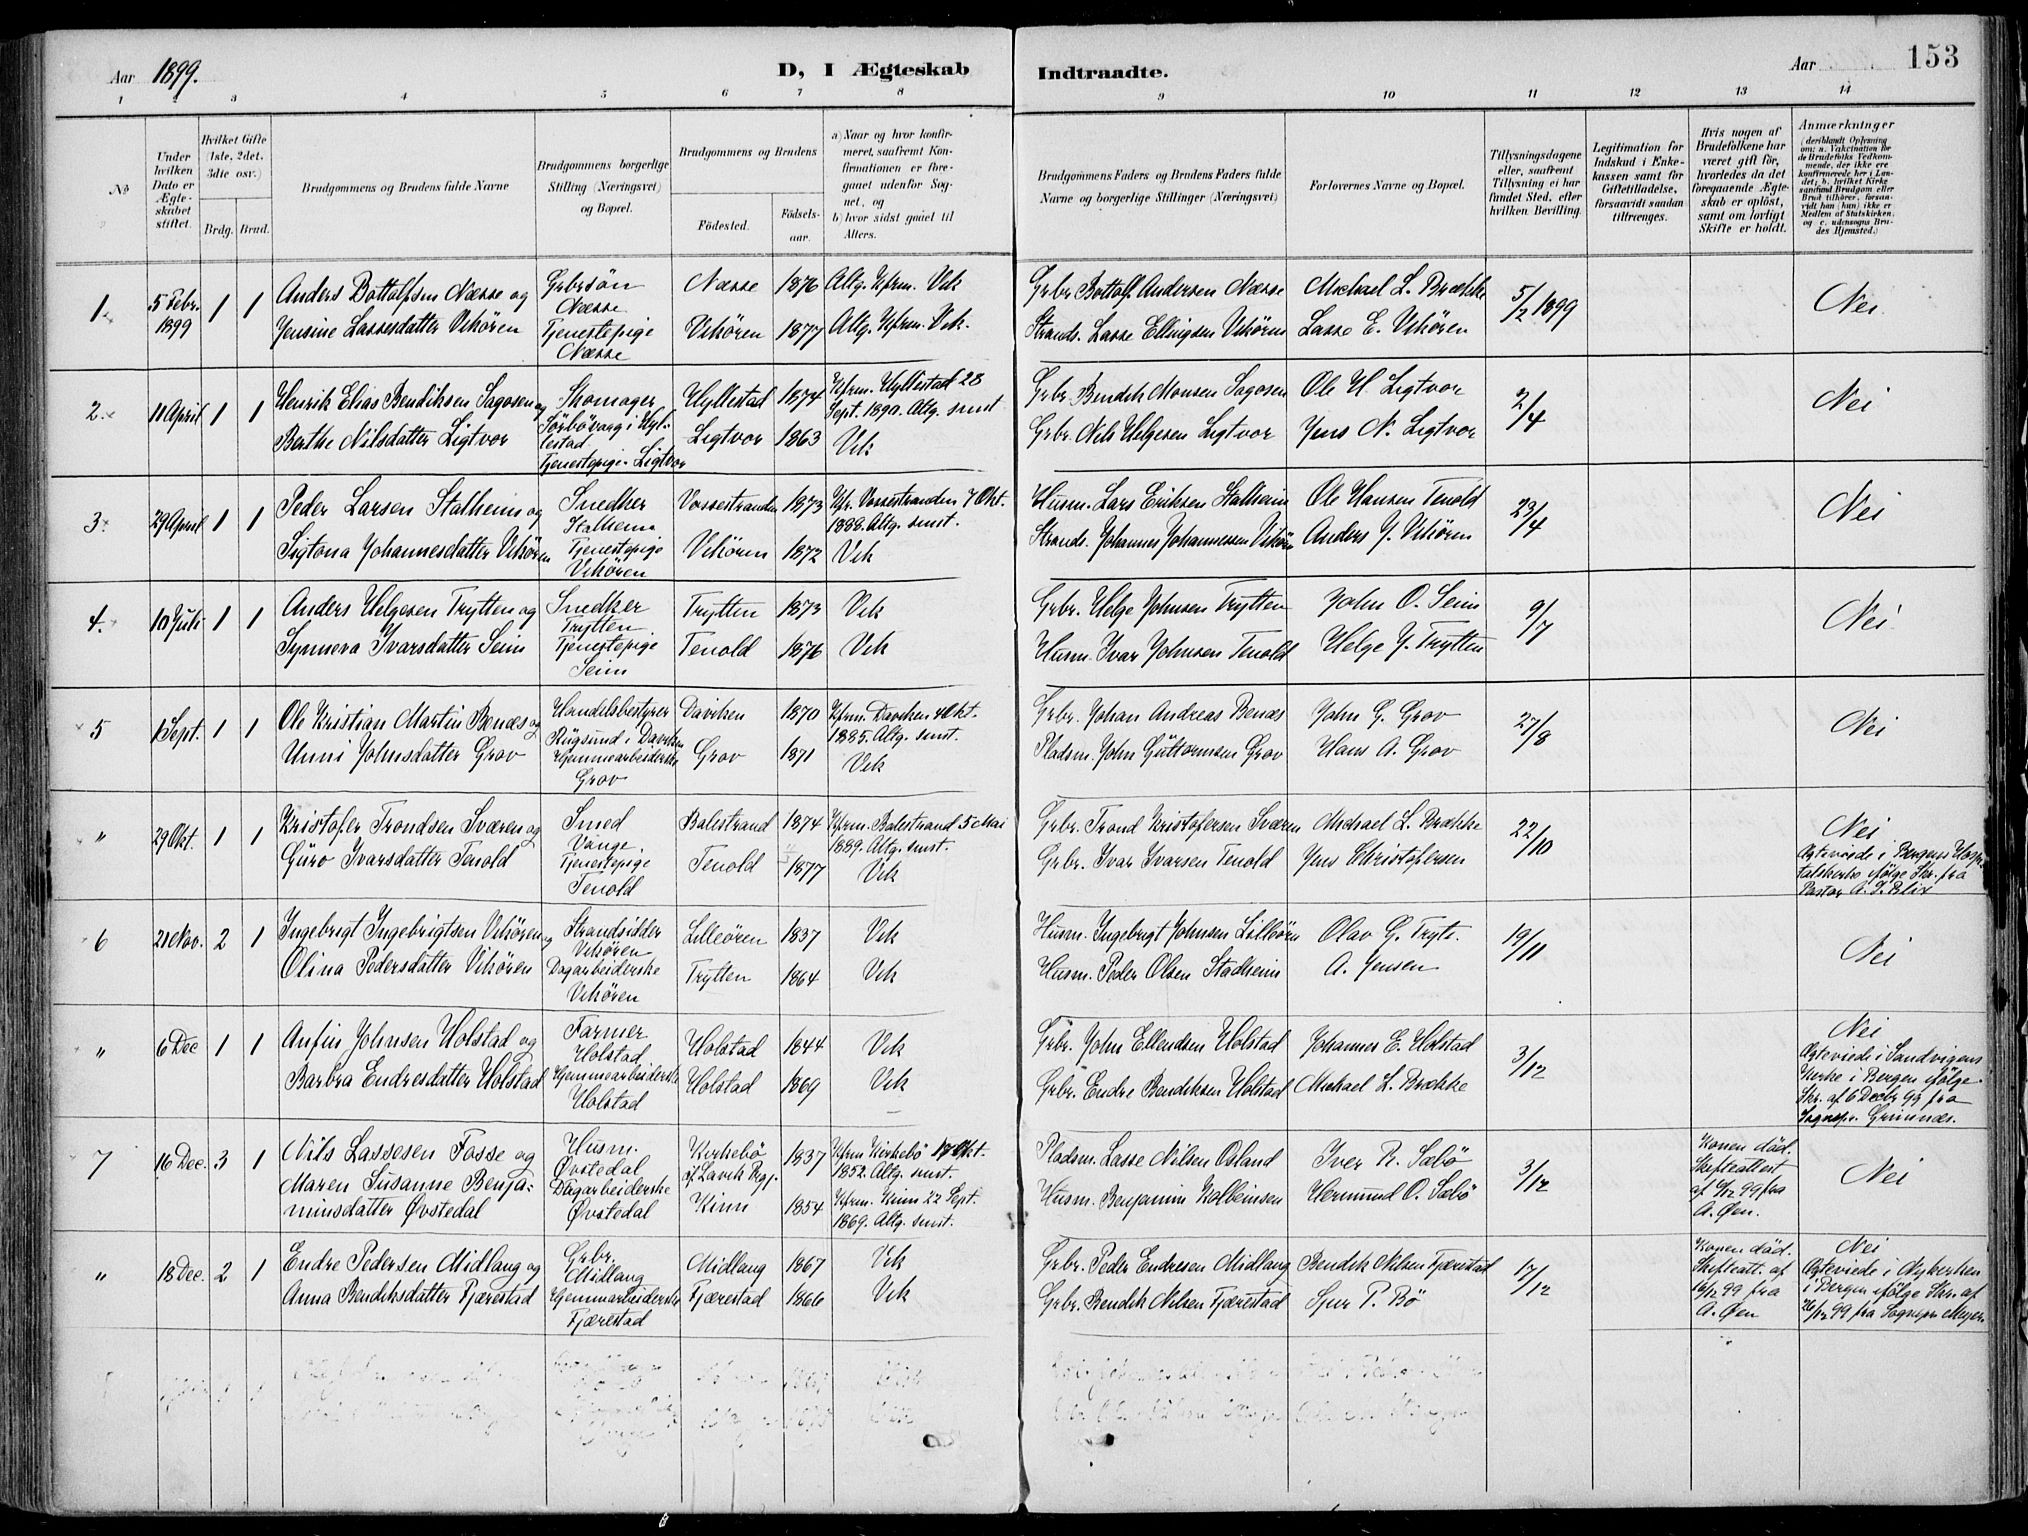 Aar 1899.
D, I Ægteskab
Indtraadte.
Aar
153
1 2 3 4 5 6 7 8 9 10 11 12 13 14
No
Under hvilken Dato er Ægteskabet stiftet.
Hvilket Gifte (1ste, 2det, 3die osv.)
Brdg. Brud.
Brudgommens og Brudens fulde Navne
Brudgommens borgerlige Stilling (Næringsvei) og Bopæl.
Brudgommens og Brudens
Födested.
Födselsaar.
a) Naar og hvor konfirmeret, saafremt Konfirmationen er foregaaet udenfor Sognet, og
b) hvor sidst gaaet til Alters.
Brudgommens Faders og Brudens Faders fulde Navne og borgerlige Stillinger (Næringsvei)
Forlovernes Navne og Bopæl.
Tillysningsdagene eller, saafremt Tillysning ei har fundet Sted, efter hvilken Bevilling.
Legitimation for Indskud i Enkekassen samt for Giftetilladelse, forsaavidt saadan tiltrænges.
Hvis nogen af Brudefolkene har været gift för, hvorledes da det foregaaende Ægteskab er oplöst, samt om lovligt Skifte er holdt.
Anmærkninger (deriblandt Oplysning om: a. Vakcination for de Brudefolks Vedkommende, der ikke ere konfirmerede her i Landet; b. hvilket Kirkesamfund Brudgom eller Brud tilhörer, forsaavidt han (hun) ikke er Medlem af Statskirken; og c. udensogns Brudes Hjemsted.)
1. 5 Febr. 1899 1 1 Anders Bottolfsen Næsse og Gbrsön Næsse Næsse 1876 Altg. Kfrm. Vik Grbr. Bottolf Andersen Næsse Michael L. Brække 5/2 1899 Nei.
Jensine Lassesdatter Vikören Tjenestepige Næsse Vikören 1877 Altg. Kfrm. Vik. Strands. Lasse Ellingsen Vikören Lasse E. Vikören
2. 11 April 1 1 Henrik Elias Bendiksen Sagosen og Skomager Sörbövaag i Hyllestad Hyllestad 1874 Kfrm. Hyllestad 28 Sept. 1890. Altg. smst Grbr. Bendik Monsen Sagosen Ole H. Ligtvor 2/4 Nei
Berthe Nilsdatter Ligtvor Tjenestepige. Ligtvor Ligtvor 1863 Vik Grbr. Nils Helgesen Ligtvor Jens N. Ligtvor
3. 29 April 1 1 Peder Larsen Stalheim og Snedker Stalheim Vossestranden 1873 Kfr. Vossestranden 7 Okt. 1888. Altg. smst. Husm. Lars Eriksen Stalheim Ole Hansen Tenold 23/4 Nei
Sigtona Johannesdatter Vikören Tjenestepige Vikören Vikören 1872 Vik Strands. Johannes Johannessen Vikören Anders J. Vikören
4. 10 Juli 1 1 Anders Helgesen Trytten og Snedker Trytten Trytten 1873 Vik Grbr. Helge Johnsen Trytten John O. Seim 9/7 Nei.
Synneva Ivarsdatter Seim Tjenestepige Seim Tenold 1876 Vik Husm. Ivar Johnsen Tenold Helge J. Trytten
5 1 Sept. 1 1 Ole Kristian Martin Benæs og Handelsbestyrer Rugsund i Daviken Daviken 1870 Kfrm. Daviken 4 Okt. 1885. Altg. smst. Grbr. Johan Andreas Benæs John G. Grov 27/8 Nei
Unni Johnsdatter Grov Hjemmearbeiderske Grov Grov 1871 Vik Pladsm. John Guttormsen Grov Hans A. Grov
" 29 Okt. 1 1 Kristofer Trondsen Sværen og Smed Vange. Balestrand 1874 Kfrm. Balestrand 5 Mai 1889. Altg. smst. Grbr. Trond Kristofersen Sværen Michael L. Brække 22/10 Nei
Guro Ivarsdatter Tenold Tjenestepige Tenold Tenold 1877 Vik Grbr. Ivar Ivarsen Tenold Jens Christofersen Ægteviede i Bergens Hospitalskirke ifölge Skr. fra Pastor A. J. Blix
6 21 Nov. 2 1 Ingebrigt Ingebrigtsen Vikören og Strandsidder Vikören Lilleören 1837 Vik Husm. Ingebrigt Johnsen Lilleören Olav G. Tryts. 19/11 Nei
Olina Pedersdatter Vikören Dagarbeiderske Vikören Trytten 1864 Vik Husm. Peder Olsen Stadheim A. Jensen
" 6 Dec 1 1 Anfin Johnsen Holstad og Farmer Holstad Holstad 1844 Vik Grbr. John Ellendsen Holstad Johannes E. Holstad 3/12 Nei
Barbra Endresdatter Holstad Hjemmearbeiderske Holstad Holstad 1869 Vik Grbr. Endre Bendiksen Holstad Michael L. Brække Ægteviede i Sandvigens Kirke i Bergen ifölge Skr. af 6 Decbr 99 fra Sognepr. Grimnæs.
7 16 Dec. 3 1 Nils Lassesen Fosse og Husm. Øvstedal Kirkebö af Lavik Prgj. 1837 Kfrm Kirkebö 17 Okt. 1852. Altg. smst. Pladsm. Lasse Nilsen Osland Iver R. Sæbö 3/12 Konen död. Skifteattest af 6/12 99 fra A. Øen. Nei
Maren Susanne Benjaminsdatter Øvstedal Dagarbeiderske Øvstedal Kinn 1854 Kfrm. Kinn 22 Sept. 1869. Altg. smst. Husm. Benjamin Kolbeinsen Hermund O. Sæbö
" 18 Dec. 2 1 Endre Pedersen Midlang og Grbr. Midlang Midlang 1867 Vik Grbr. Peder Endresen Midlang Bendik Nilsen Fjærestad 17/12 Konen död. Skifteatt. af 16/12 99 fra A. Øen Nei
Anna Bendiksdatter Fjærestad Hjemmearbeiderske Fjærestad Fjærestad 1866 Vik Grbr. Bendik Nilsen Fjærestad Sjur P. Bö Ægteviede i Nykirken i Bergen ifölge Skr. af 26/12 99 fra Sognepr Meyer